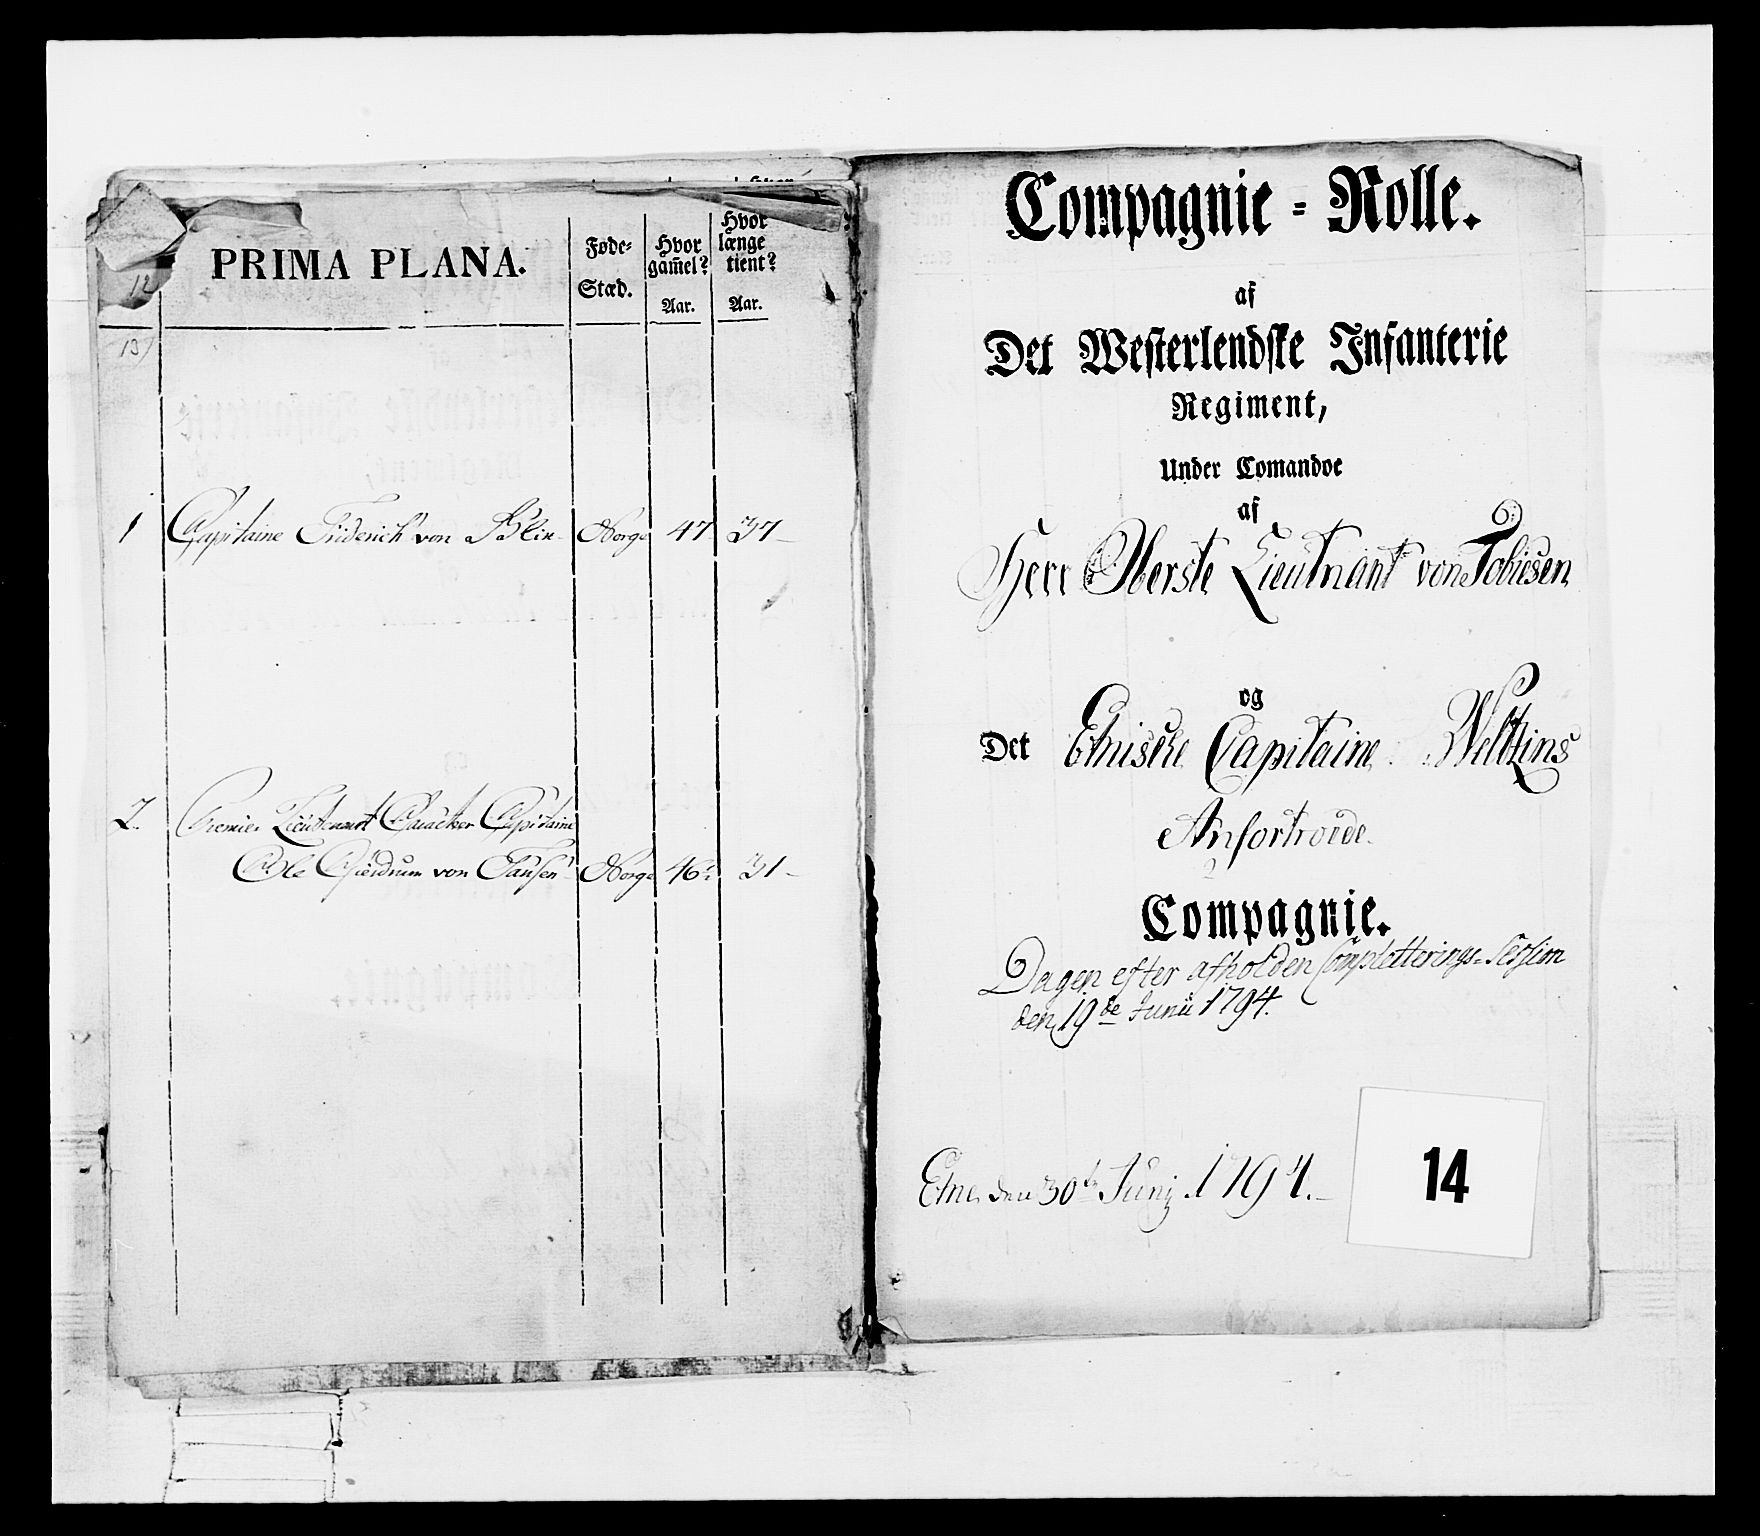 12
13
PRIMA PLANA.
Føde=
Stæd.
Hvor
gam̄el?
Aar.
Hvor
længe
tient?
Aar.
1 Capitaine Friderich von Norge 47 37
2. Premier Lieutenant Caracteer Capitaine
Ole von Norge 46 31
Compagnie = Rolle.
af
Det Westerlendske Infanterie
Regiment,
Under Comandoe
af
Herr Oberste Lieutnant von Tobiesen
og
Det Etnische Capitaine Weltzins
Anfortroede
Compagnie.
Dagen efter afholden Completterings=Session
den 19de Junii 1794.
Etne den 30te Junij 1794.
14